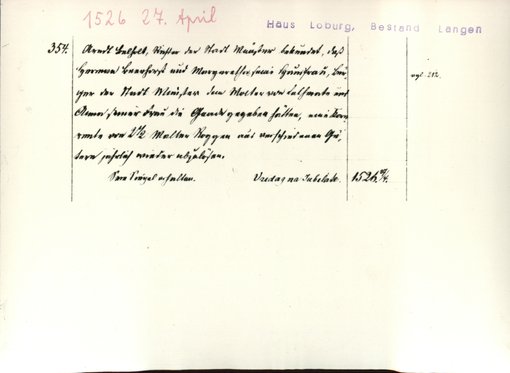 1526 27. April
Haus Loburg, Bestand Langen
354. Arndt Belholt, Richter der Stadt Münster bekundet, daß
Herman und Margarethe seine Hausfrau, Bür-
ger der Stadt Münster dem Wolter von und
seiner Frau die Gnade gegeben hätten, eine Korn-
rente von 2 1/2 Malter Roggen aus verschiedenen Gü-
tern jährlich wieder abzulösen.
vgl. 212.
Sein Siegel erhalten. Vredag na Jubilate. 1526 27/4.